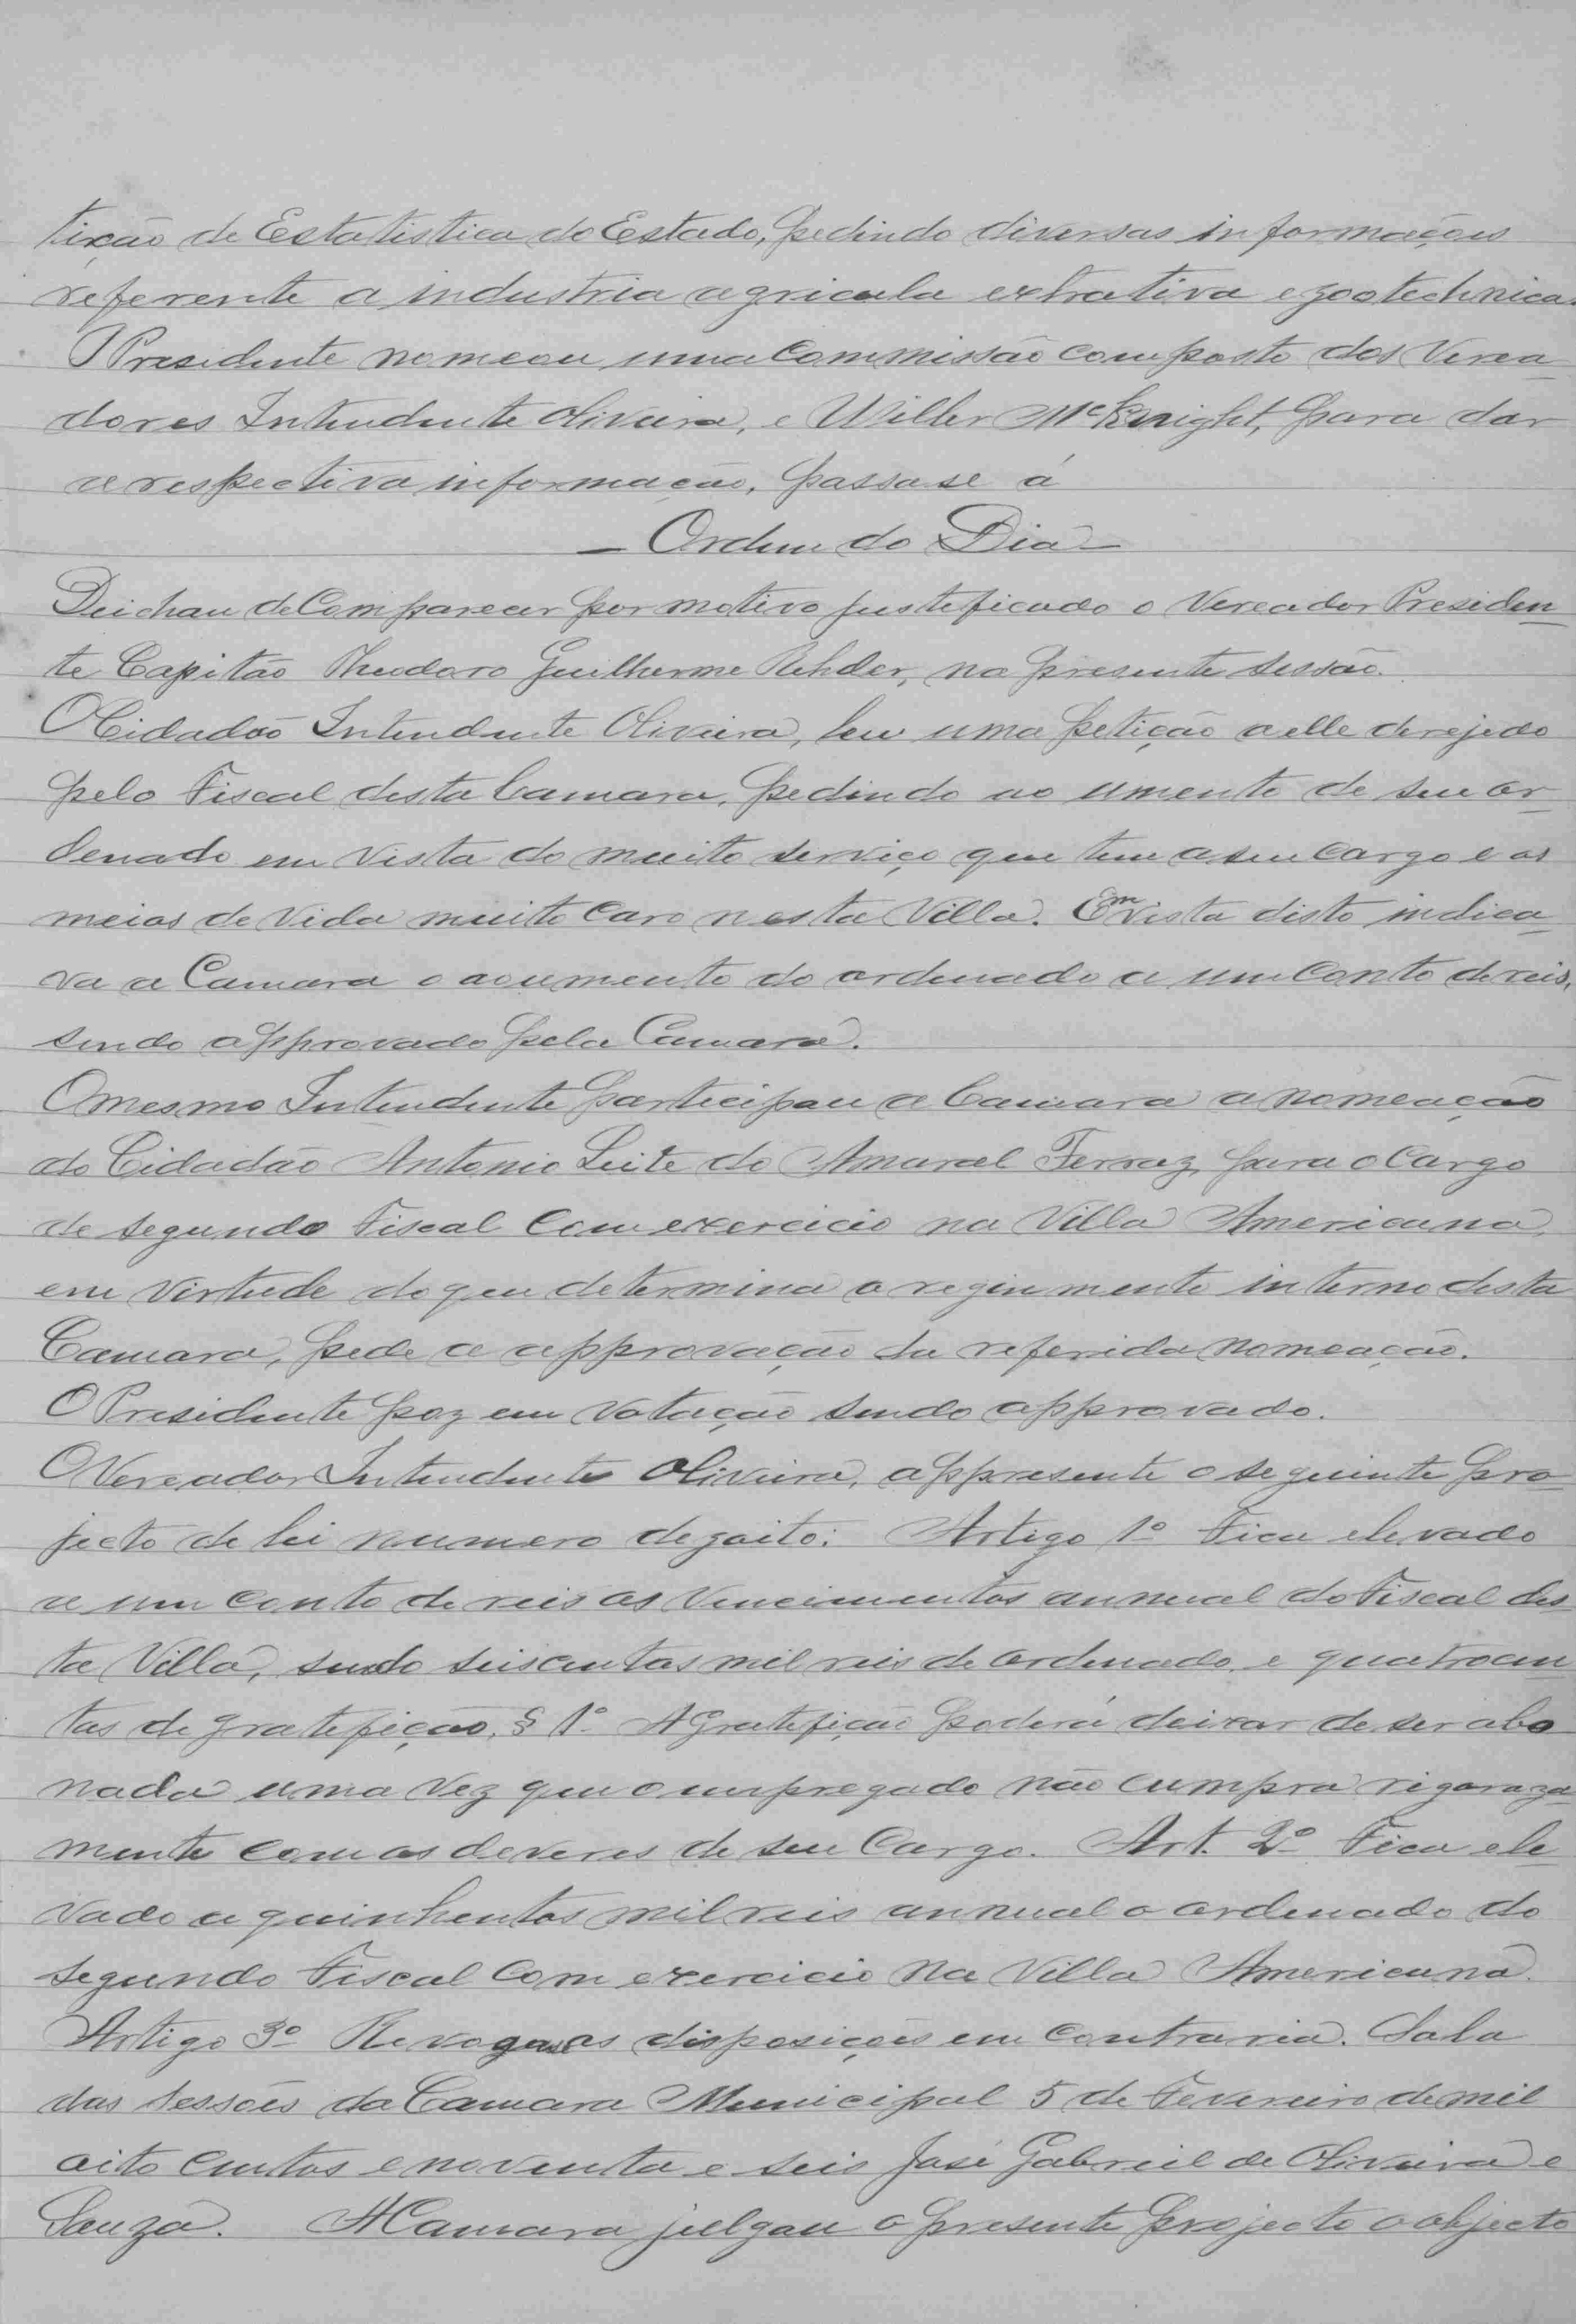 tição de Estatistica do Estado, pedindo diversas informações
referente a industria agricula extrativa e zootechnica.
O Presidente nomeou uma Commissão composto dos Verea
dores Intendente Oliveira, e Willer McKnight, para dar
a respectiva informação, passa se á
— Ordem do Dia —
Deichou de Comparecer por motivo justeficado o Vereador Presiden
te Capitão Theodoro Guilherme Rehder, na presente sessão.
O Cidadão Intendente Oliveira, leu uma petição a elle derejedo
pelo Fiscal desta Camara, pedindo ao umento de seu or
denado em vista do muito serviço que tem a seu Cargo e os
meios de Vida muito Caro nesta Villa. Em vista disto indica
va a Camara o aoumento do ordenado a um Conto de reis,
sendo approvado pela Camara.
O mesmo Intendente participou a Camara a nomeação
do Cidadão Antonio Leite do Amaral Ferraz, para o Cargo
de segundo Fiscal Com exercicio na Villa Americana,
em Virtude do que determina o regimmento interno desta
Camara, pede a approvação da referida nomeação.
O Presidente poz em Votação sendo approvado.
O Vereador Intendente Oliveira, appresente o seguinte pro
jecto de lei numero dezoito: Artigo 1º Fica elevado
a um conto de reis os Vencimentos annual do Fiscal des
ta Villa, sendo seiscentos mil reis de Ordenado e quatrocen
tos de gratefição. § 1º A Gratefição poderá deixar de ser abo
nada uma Vez que o empregado não cumpra rigoroza
mente com os deveres de seu Cargo. Art. 2º Fica ele
vado a quinhentos mil reis annual o ordenado do
segundo Fiscal Com exercicio na Villa Americana.
Artigo 3º Revogase as disposições em Contraria. Sala
das sessões da Camara Municipal 5 de Fevereiro de mil
oito Centos e noventa e seis José Gabriel de Oliveira e
Souza. A Camara julgou o presente projecto o objecto